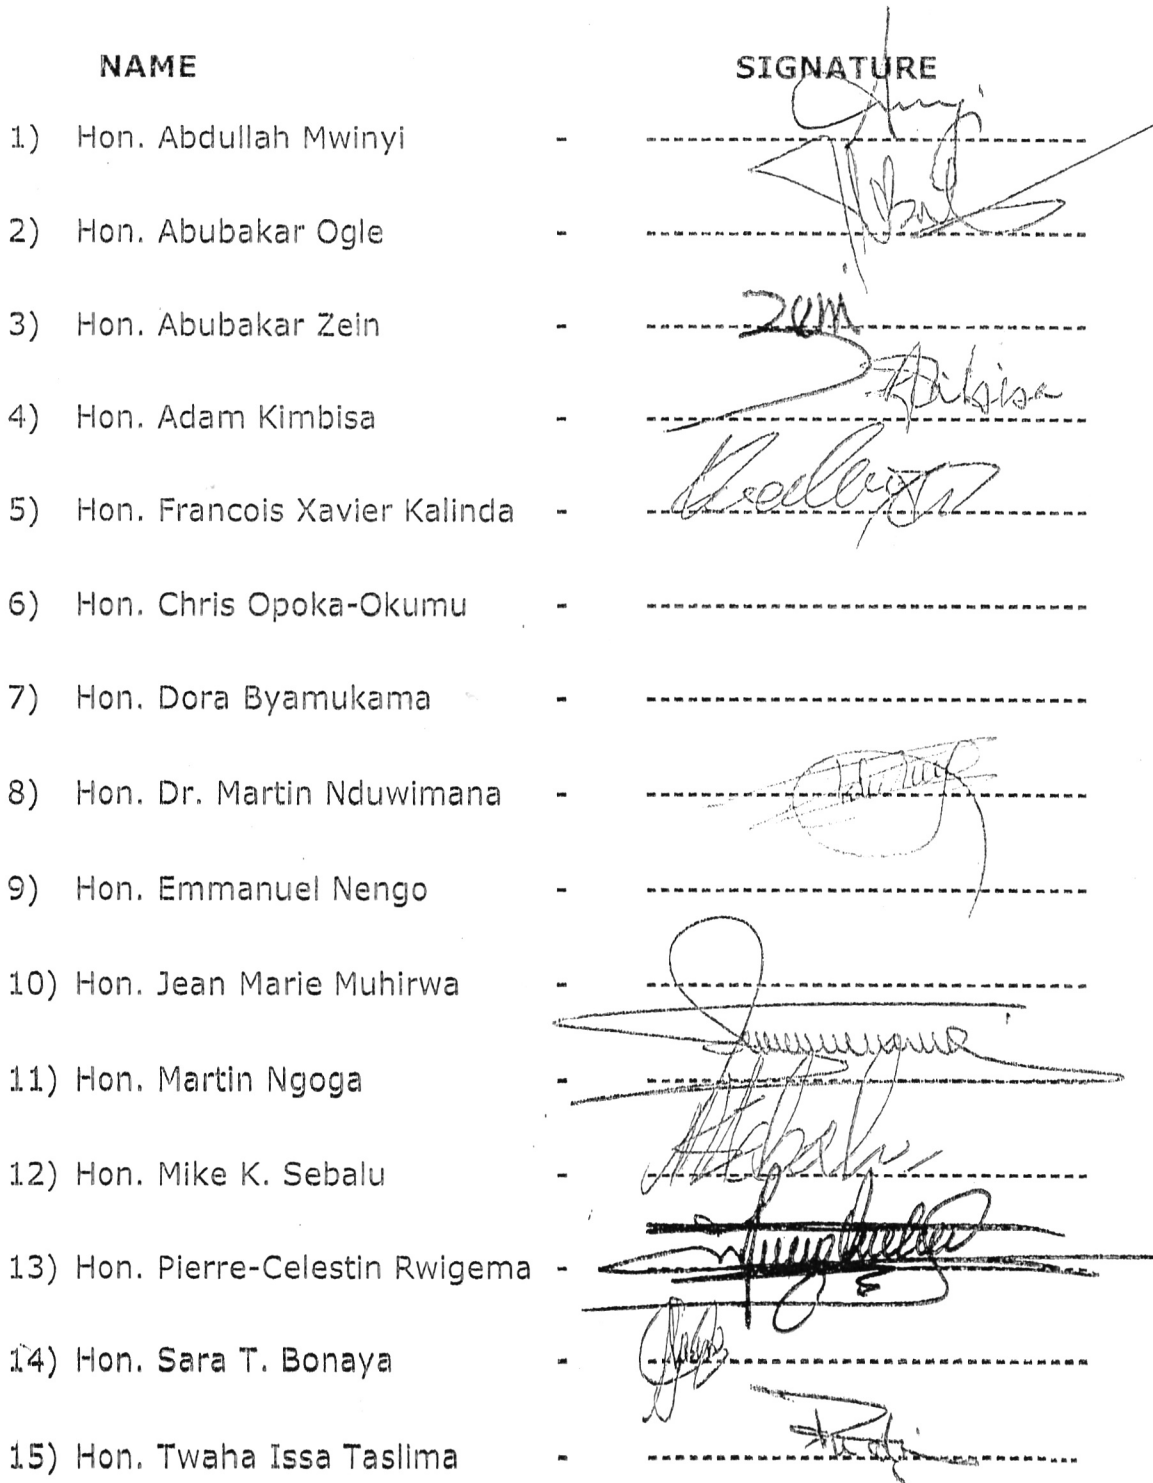 NAME SIGNATURE
1) Hon. Abdullah Mwinyi - 
2) Hon. Abubakar Ogle - 
3) Hon. Abubakar Zein - Zein
4) Hon. Adam Kimbisa - 
5) Hon. Francois Xavier Kalinda - 
6) Hon. Chris Opoka-Okumu - 
7) Hon. Dora Byamukama - 
8) Hon. Dr. Martin Nduwimana - 
9) Hon. Emmanuel Nengo - 
10) Hon. Jean Marie Muhirwa - 
11) Hon. Martin Ngoga - 
12) Hon. Mike K. Sebalu - 
13) Hon. Pierre-Celestin Rwigema - 
14) Hon. Sara T. Bonaya - 
15) Hon. Twaha Issa Taslima -